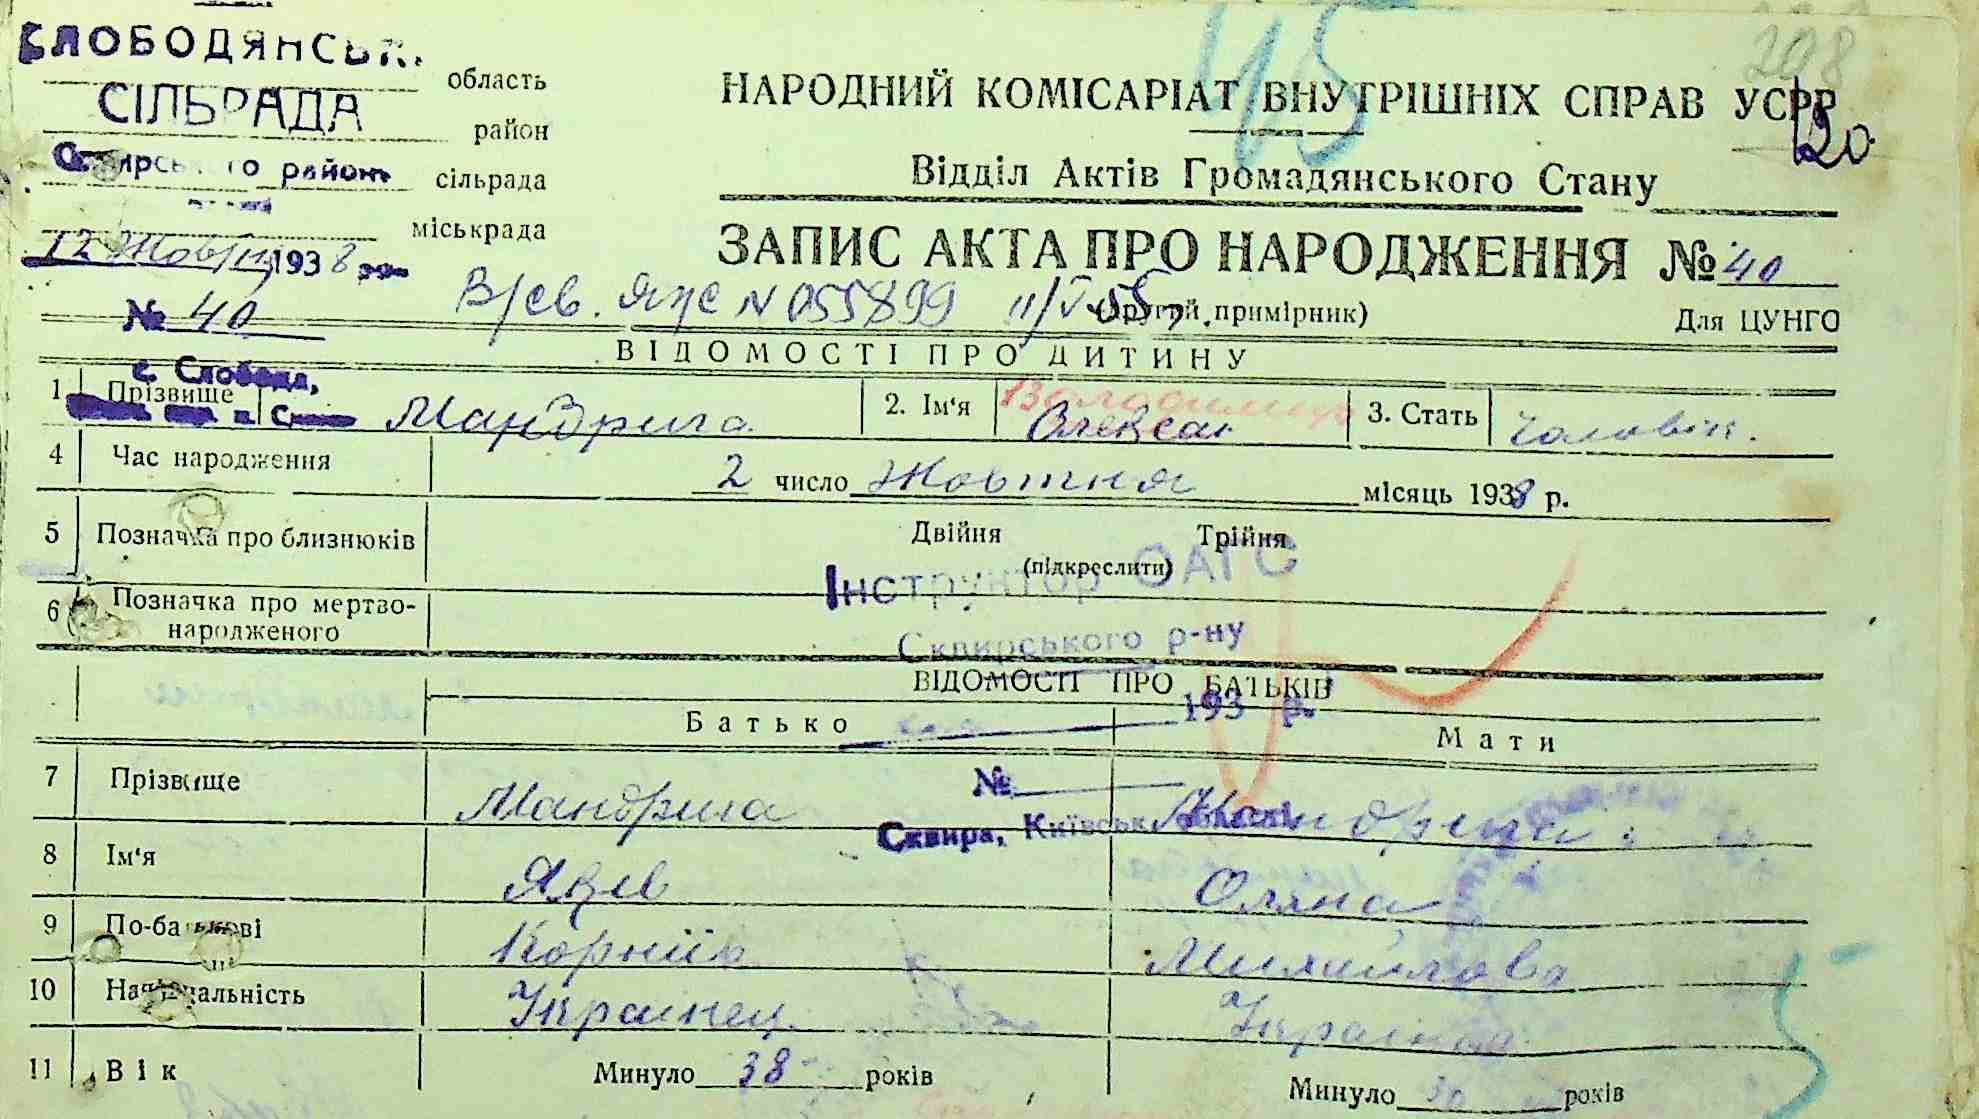 СЛОБОДЯНСЬК.
область
СІЛЬРАДА
район
Сквирського району
сільрада
міськрада
12 Жовтня 1938
№ 40
45
208
120
НАРОДНИЙ КОМІСАРІАТ ВНУТРІШНІХ СПРАВ УСРР
Відділ Актів Громадянського Стану
ЗАПИС АКТА ПРО НАРОДЖЕННЯ № 40
(другий примірник)
Для ЦУНГО
В/св. ЯПС N 055899 11/V-55
ВІДОМОСТІ ПРО ДИТИНУ
с. Слобода,
1 Прізвище Мандрига 2. Ім'я Володимир Олександр 3. Стать Чоловіч.
4 Час народження 2 число Жовтня місяць 1938 р.
5 Позначка про близнюків Двійня Трійня
(підкреслити)
Інструктор ОАГС
6 Позначка про мертво-
народженого
Сквирського р-ну
ВІДОМОСТІ ПРО БАТЬКІВ
193 р.
Батько Мати
7 Прізвище Мандрига Мандрига
№
Сквира, Київськ. області
8 Ім'я Яків Оляна
9 По-батькові Корнійв Михайлова
10 Національність Українец Українка
11 Вік Минуло 38 років Минуло 30 років